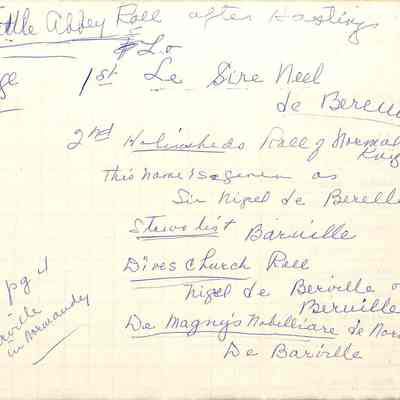 ttle Abbey Roll after Hastings
L.o
ge
1st Le Sire Neel
de Bereu
2nd Holinsheds Roll of Norman
This name is given as
Sir Nigel de Berelle
Stows list Barville
Dives Church Roll
Nigel de Berville o
Berville
pg 4
rville
in Normandy
De Magny's Nobilliare de Nor
De Barville